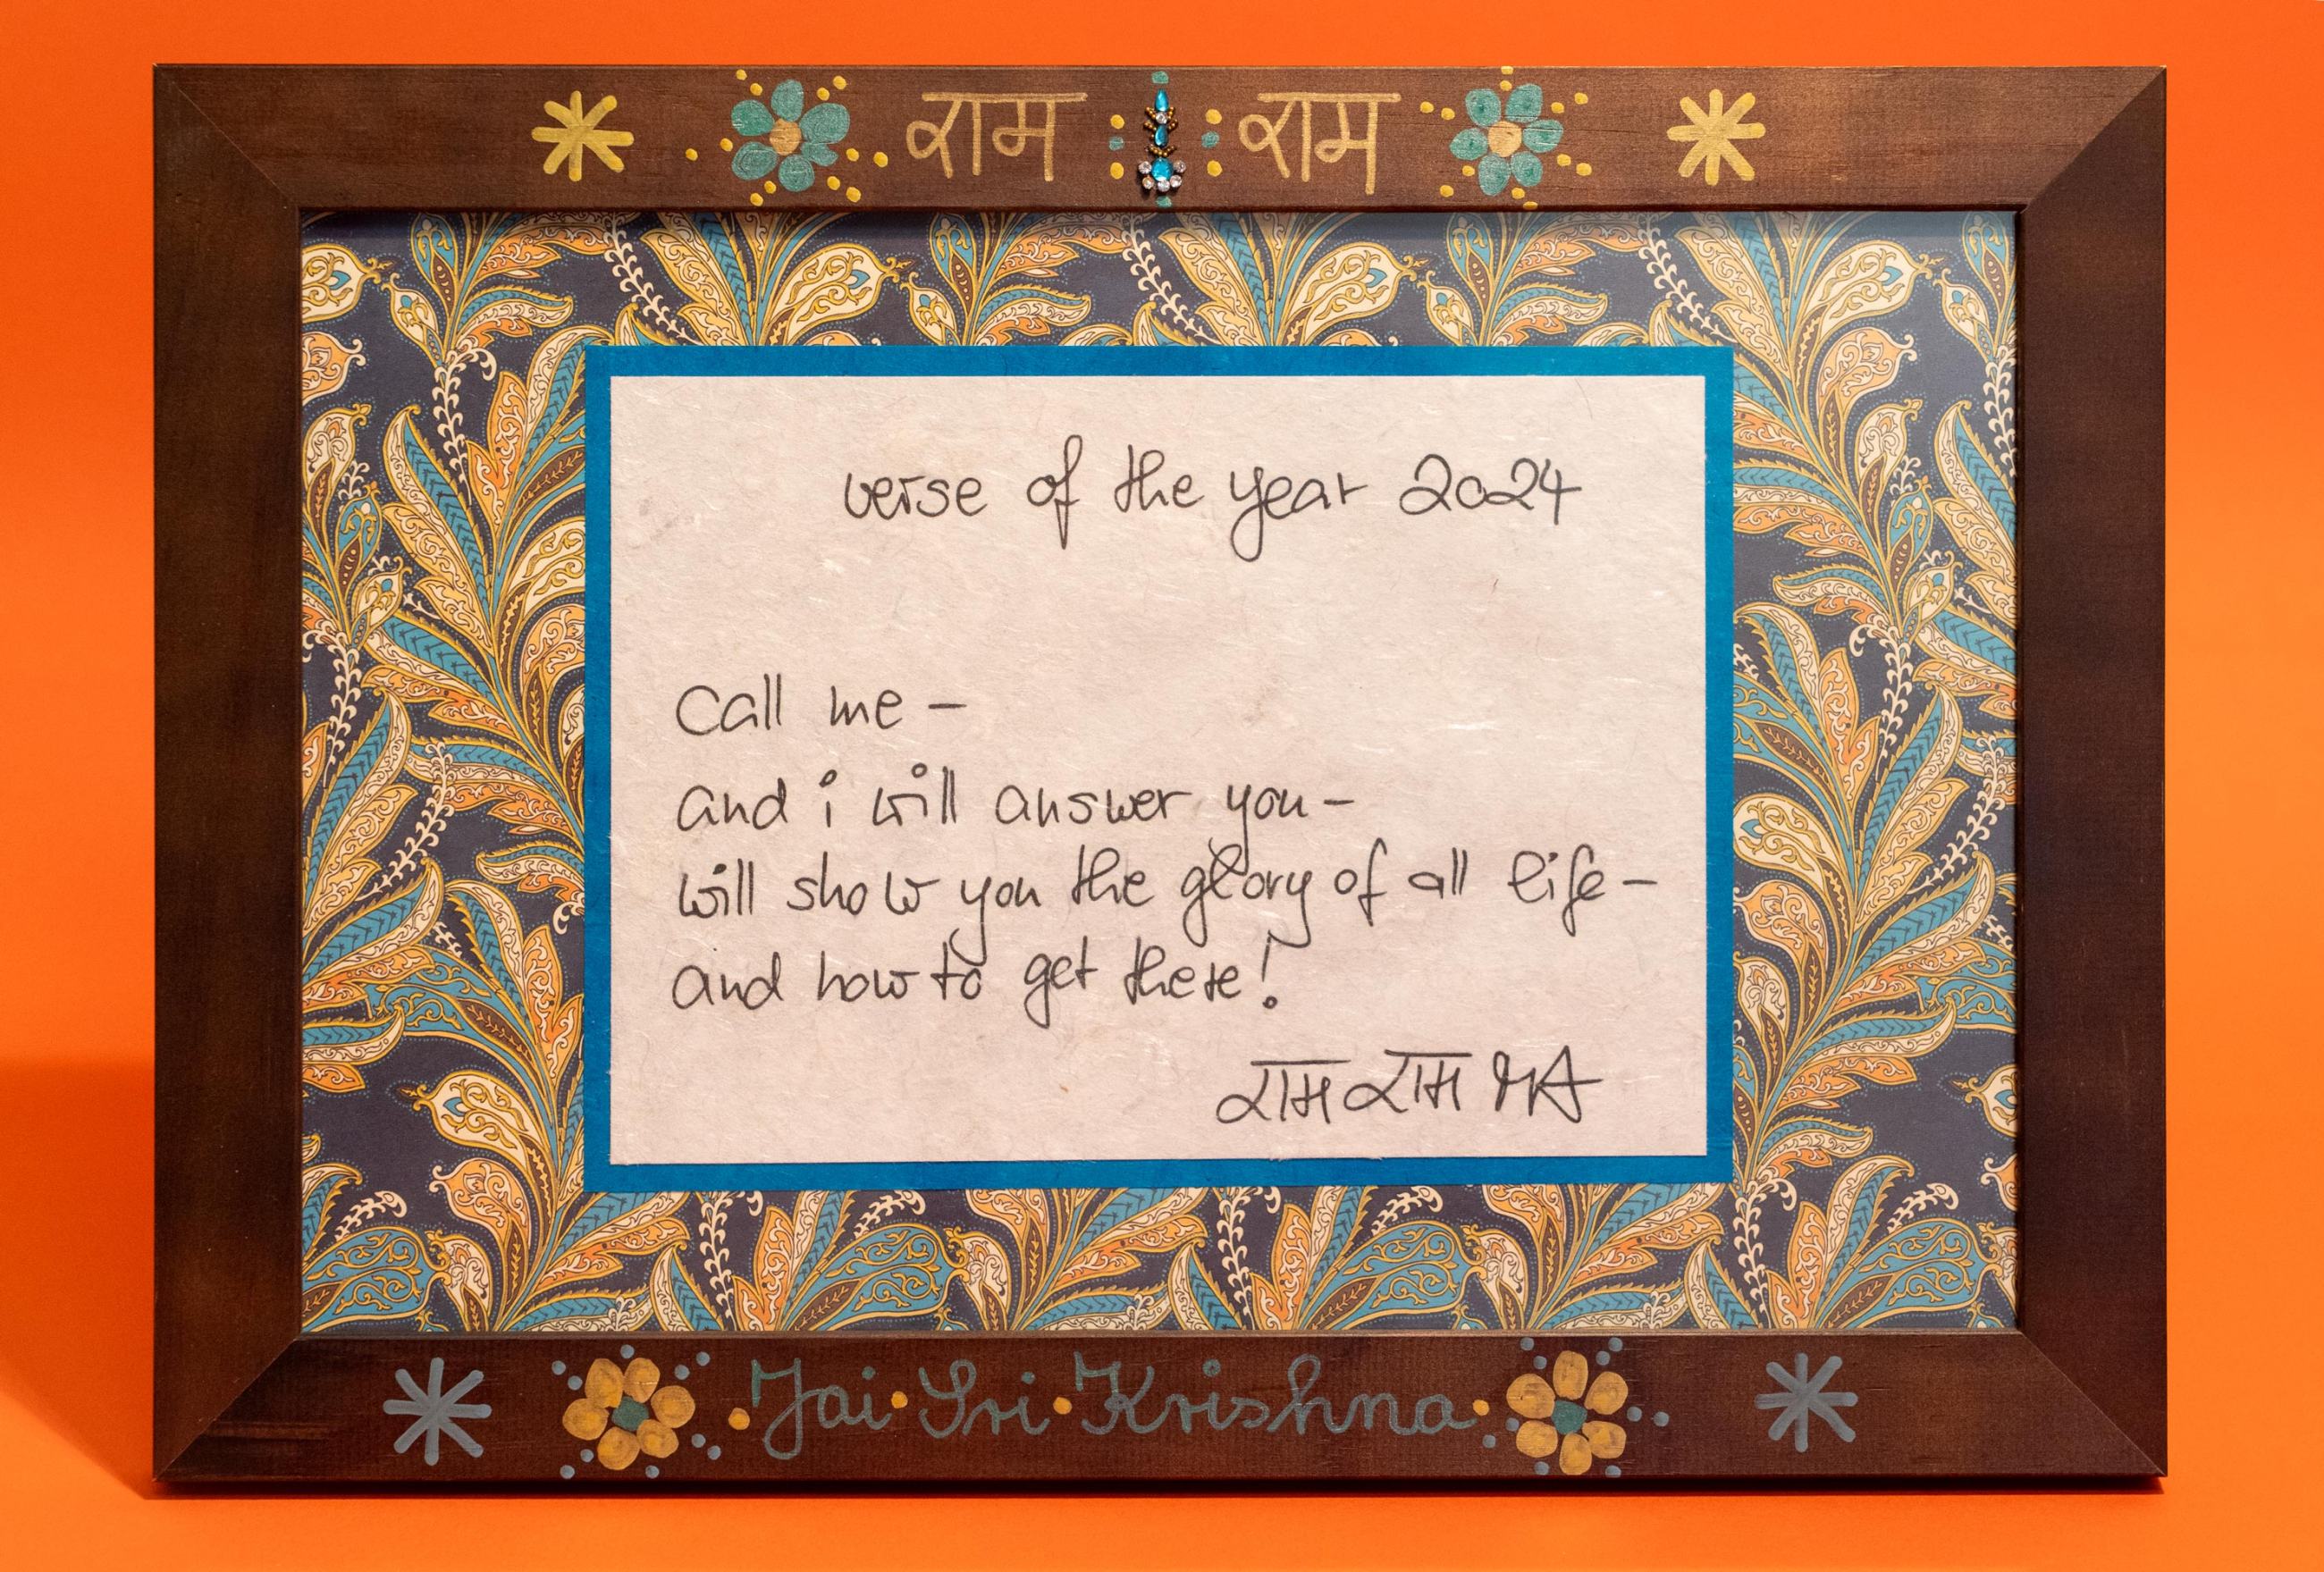 राम राम
verse of the year 2024
Call me –
and i will answer you –
will show you the glory of all life –
and how to get there!
राम राम MA
Jai · Sri · Krishna